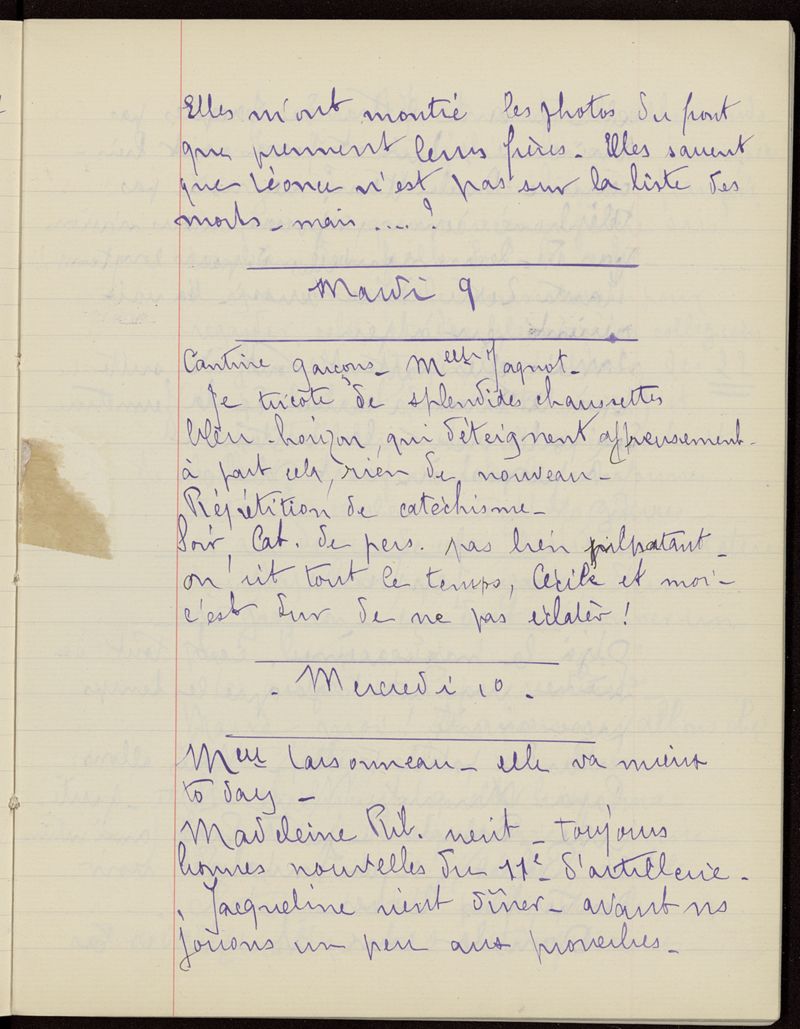 Elles m'ont montré les photos du front
que prennent leurs frères - Elles savent
que Léonce n'est pas sur la liste des
morts - mais .... ?
Mardi 9
Cantine garçons - Melle Jagnot -
Je tricote de splendides chaussettes
bleu-horizon, qui déteignent affreusement -
à part cela, rien de nouveau -
Répétition de catéchisme -
Soir, Cat. de pers. pas bien palpitant -
on rit tout le temps, Cécile et moi -
c'est dur de ne pas éclater !
- Mercredi 10 -
Melle - elle va mieux
to day -
Madeleine Rib. vient - toujours
bonnes nouvelles du 11e d'artillerie -
Jacqueline vient dîner - avant ns
jouons un peu aux proverbes -